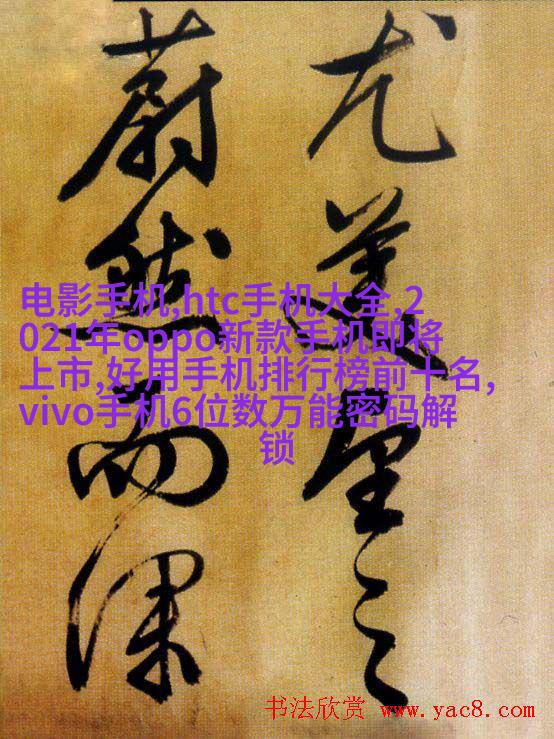 尤美望之
蔚然而深
电影手机,htc手机大全,2
021年oppo新款手机即将
上市,好用手机排行榜前十名,
vivo手机6位数万能密码解
锁
书法欣赏 www.yac8.com